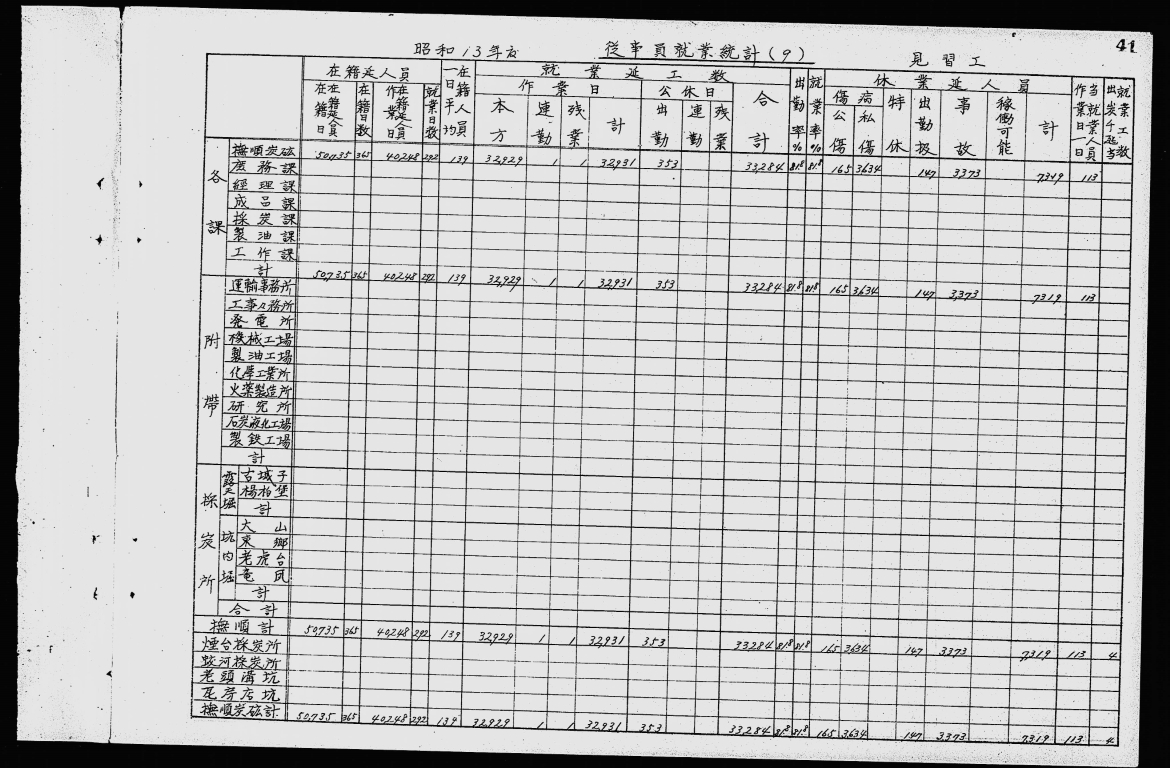 41
昭和13年度 従事員就業統計(9) 見習工
在籍延人員 一日平均 在籍人員 就業延工数 出勤率% 就業率% 休業延人員 作業日 当就業人員 出炭千瓲当 就業工数
在籍日 在籍延人員 在籍日数 作業日 在籍延人員 就業日数 作業日 公休日 合計 傷公傷 病私傷 特休 出勤扱 事故 稼働可能 計
本方 連勤 残業 計 出勤 連勤 残業
各課
撫順炭砿 50,735 365 40,248 292 139 32,929 1 1 32,931 353 33,284 81.8 81.8 165 3,634 147 3,373 7,319 113
庶務課
経理課
成品課
採炭課
製油課
工作課
計 50,735 365 40,248 292 139 32,929 1 1 32,931 353 33,284 81.8 81.8 165 3,634 147 3,373 7,319 113
附帯
運輸事務所
工事々務所
発電所
機械工場
製油工場
化学工業所
火薬製造所
研究所
石炭液化工場
製鉄工場
計
採炭所
露天堀
古城子
楊柏堡
計
坑内堀
大山
東郷
老虎台
竜鳳
計
合計
撫順計 50,735 365 40,248 292 139 32,929 1 1 32,931 353 33,284 81.8 81.8 165 3,634 147 3,373 7,319 113 4
煙台採炭所
蛟河採炭所
老頭溝坑
瓦房店坑
撫順炭砿計 50,735 365 40,248 292 139 32,929 1 1 32,931 353 33,284 81.8 81.8 165 3,634 147 3,373 7,319 113 4